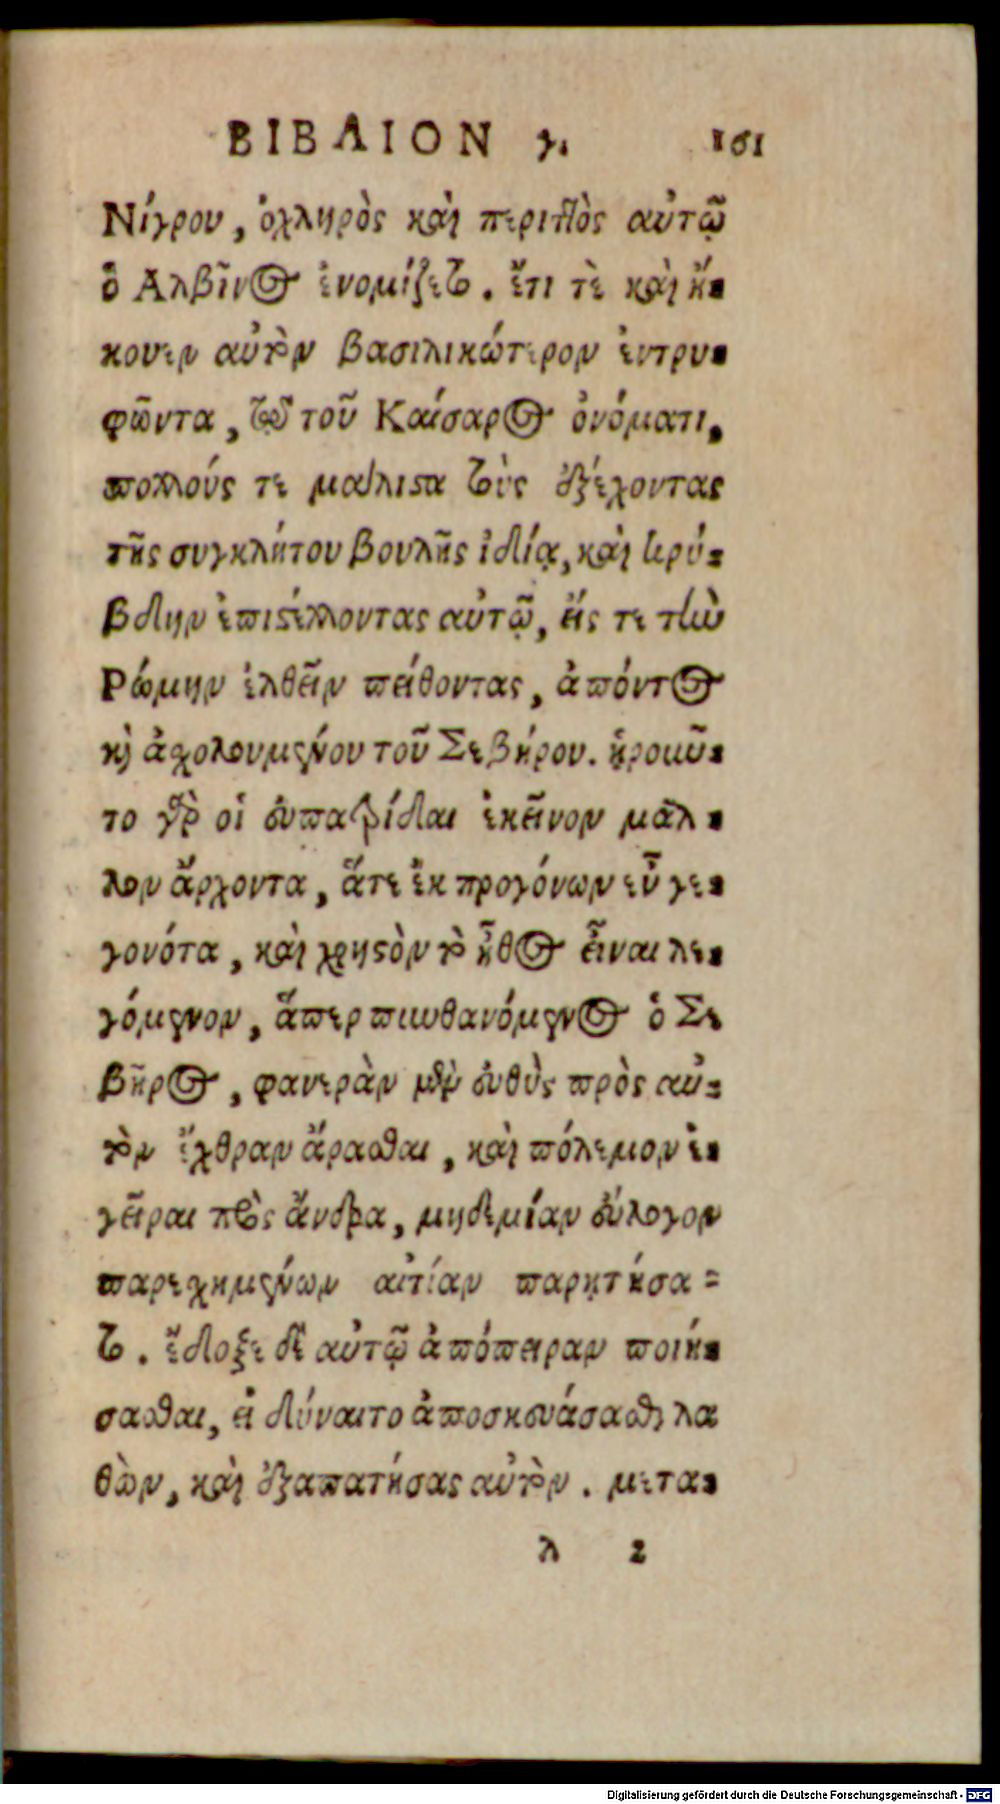 ΒΙΒΛΙΟΝ γ. 161
Νίγρου, ὀχληρὸς καὶ περιττὸς αὐτῷ
ὁ Αλβῖνος ἐνομίζετο. ἔτι τὲ καὶ ἤ-
κουεν αὐτὸν βασιλικώτερον ἐντρυ-
φῶντα, τῷ τοῦ Καίσαρος ὀνόματι,
πολλούς τε μάλιστα τοὺς ἐξέχοντας
τῆς συγκλήτου βουλῆς ἰδίᾳ, καὶ κρύ-
βδην ἐπιστέλλοντας αὐτῷ, εἴς τε τὴν
Ρώμην ἐλθεῖν πείθοντας, ἀπόντος
καὶ ἀχολουμένου τοῦ Σεβήρου. ᾑροῦν-
το γὰρ οἱ εὐπατρίδαι ἐκεῖνον μᾶλ-
λον ἄρχοντα, ἅτε ἐκ προγόνων εὖ γε-
γονότα, καὶ χρηστὸν τὸ ἦθος εἶναι λε-
γόμενον, ἅπερ πυνθανόμενος ὁ Σε
βῆρος, φανερὰν μὲν εὐθὺς πρὸς αὐ-
τὸν ἔχθραν ἄρασθαι, καὶ πόλεμον ἐ-
γεῖραι πρὸς ἄνδρα, μηδεμίαν εὔλογον
παρεχημένων αἰτίαν παρῃτήσα-
το. ἔδοξε δὲ αὐτῷ ἀπόπειραν ποιή-
σασθαι, εἰ δύναιτο ἀποσκευάσασθαι λα
θὼν, καὶ ἐξαπατήσας αὐτὸν. μετα-
λ 2
Digitalisierung gefördert durch die Deutsche Forschungsgemeinschaft - DFG